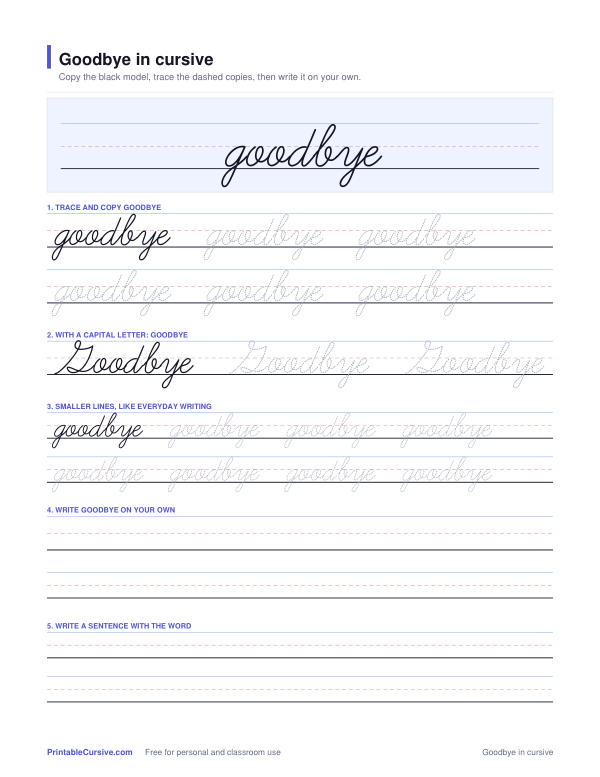 Goodbye in cursive
Copy the black model, trace the dashed copies, then write it on your own.
goodbye
1. TRACE AND COPY GOODBYE
goodbye goodbye goodbye
goodbye goodbye goodbye
2. WITH A CAPITAL LETTER: GOODBYE
Goodbye Goodbye Goodbye
3. SMALLER LINES, LIKE EVERYDAY WRITING
goodbye goodbye goodbye goodbye
goodbye goodbye goodbye goodbye
4. WRITE GOODBYE ON YOUR OWN
5. WRITE A SENTENCE WITH THE WORD
PrintableCursive.com Free for personal and classroom use Goodbye in cursive